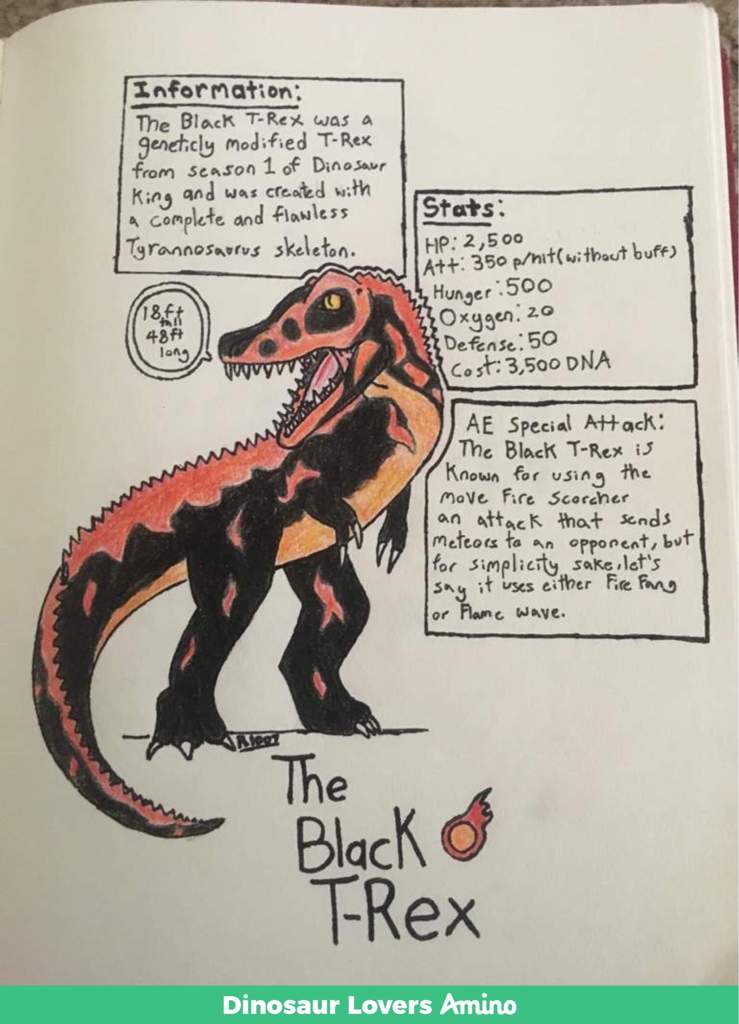 Information:
The Black T-Rex was a
geneticly modified T-Rex
from season 1 of Dinosaur
King and was created with
a complete and flawless
Tyrannosaurus skeleton.
Stats:
HP: 2,500
Att: 350 p/hit(without buff)
Hunger: 500
Oxygen: 20
Defense: 50
Cost: 3,500 DNA
18ft
tall
48ft
long
AE Special Attack:
The Black T-Rex is
known for using the
move Fire Scorcher
an attack that sends
meteors to an opponent, but
for simplicity sake, let's
say it uses either Fire Fang
or Flame wave.
The
Black
T-Rex
Dinosaur Lovers Amino